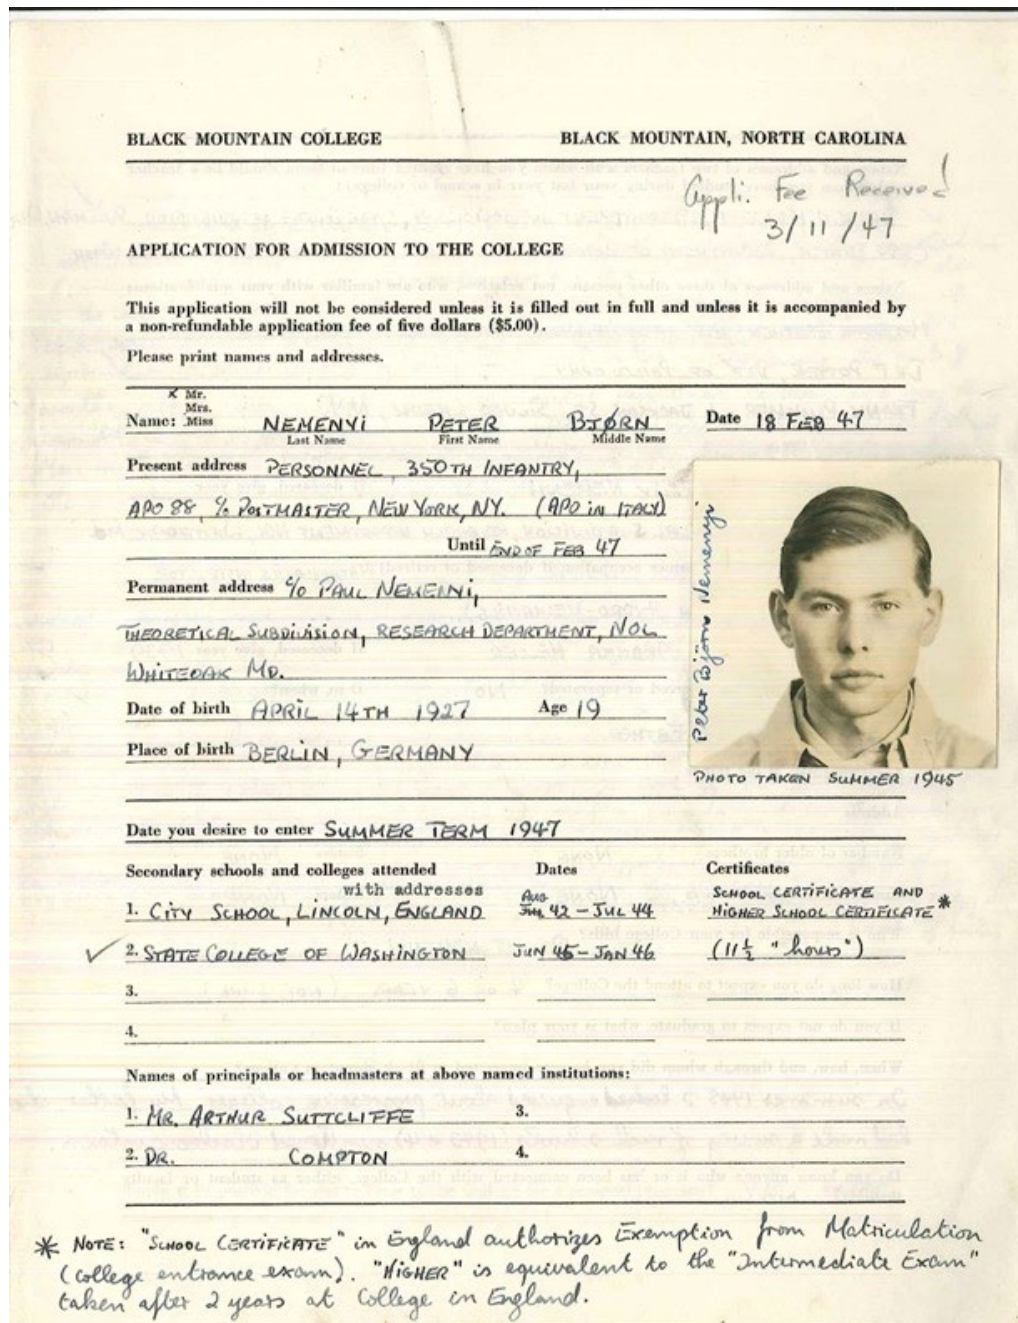 BLACK MOUNTAIN COLLEGE BLACK MOUNTAIN, NORTH CAROLINA
Appli. Fee Received
3/11/47
APPLICATION FOR ADMISSION TO THE COLLEGE
This application will not be considered unless it is filled out in full and unless it is accompanied by
a non-refundable application fee of five dollars ($5.00).
Please print names and addresses.
x Mr.
Mrs.
Name: Miss NEMENYI PETER BJØRN Date 18 FEB 47
Last Name First Name Middle Name
Present address PERSONNEL, 350TH INFANTRY,
APO 88, c/o POSTMASTER, NEW YORK, NY. (APO IN ITALY)
Until END OF FEB 47
Permanent address c/o PAUL NEMENYI,
THEORETICAL SUBDIVISION, RESEARCH DEPARTMENT, NOL
WHITEOAK MD.
Date of birth APRIL 14TH 1927 Age 19
Place of birth BERLIN, GERMANY
Peter Björn Nemenyi
PHOTO TAKEN SUMMER 1945
Date you desire to enter SUMMER TERM 1947
Secondary schools and colleges attended Dates Certificates
with addresses
1. CITY SCHOOL, LINCOLN, ENGLAND Aug 42 – JUL 44 SCHOOL CERTIFICATE AND
HIGHER SCHOOL CERTIFICATE *
2. STATE COLLEGE OF WASHINGTON JUN 45 – JAN 46 (11½ "hours")
3.
4.
Names of principals or headmasters at above named institutions:
1. MR. ARTHUR SUTTCLIFFE 3.
2. DR. COMPTON 4.
* NOTE: "SCHOOL CERTIFICATE" in England authorizes Exemption from Matriculation
(college entrance exam). "HIGHER" is equivalent to the "Intermediate Exam"
taken after 2 years at College in England.